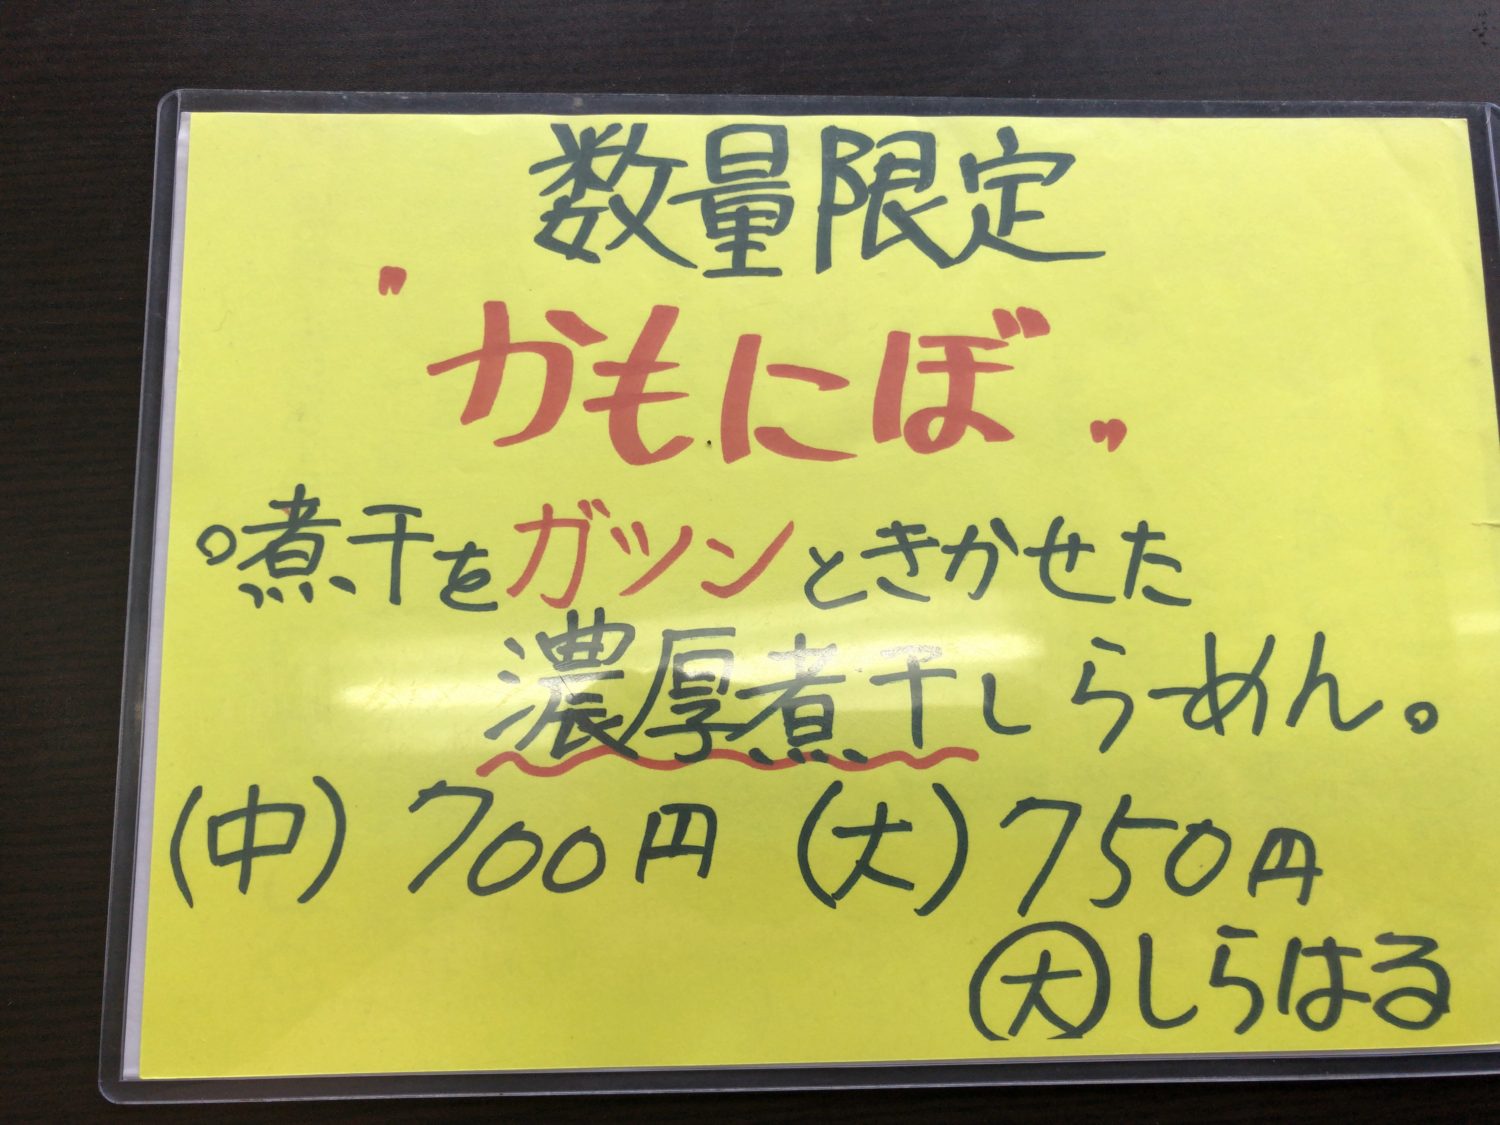 数量限定
"かもにぼ"
○煮干をガツンときかせた
濃厚煮干しらーめん。
(中)700円 (大)750円
㊅しらはる